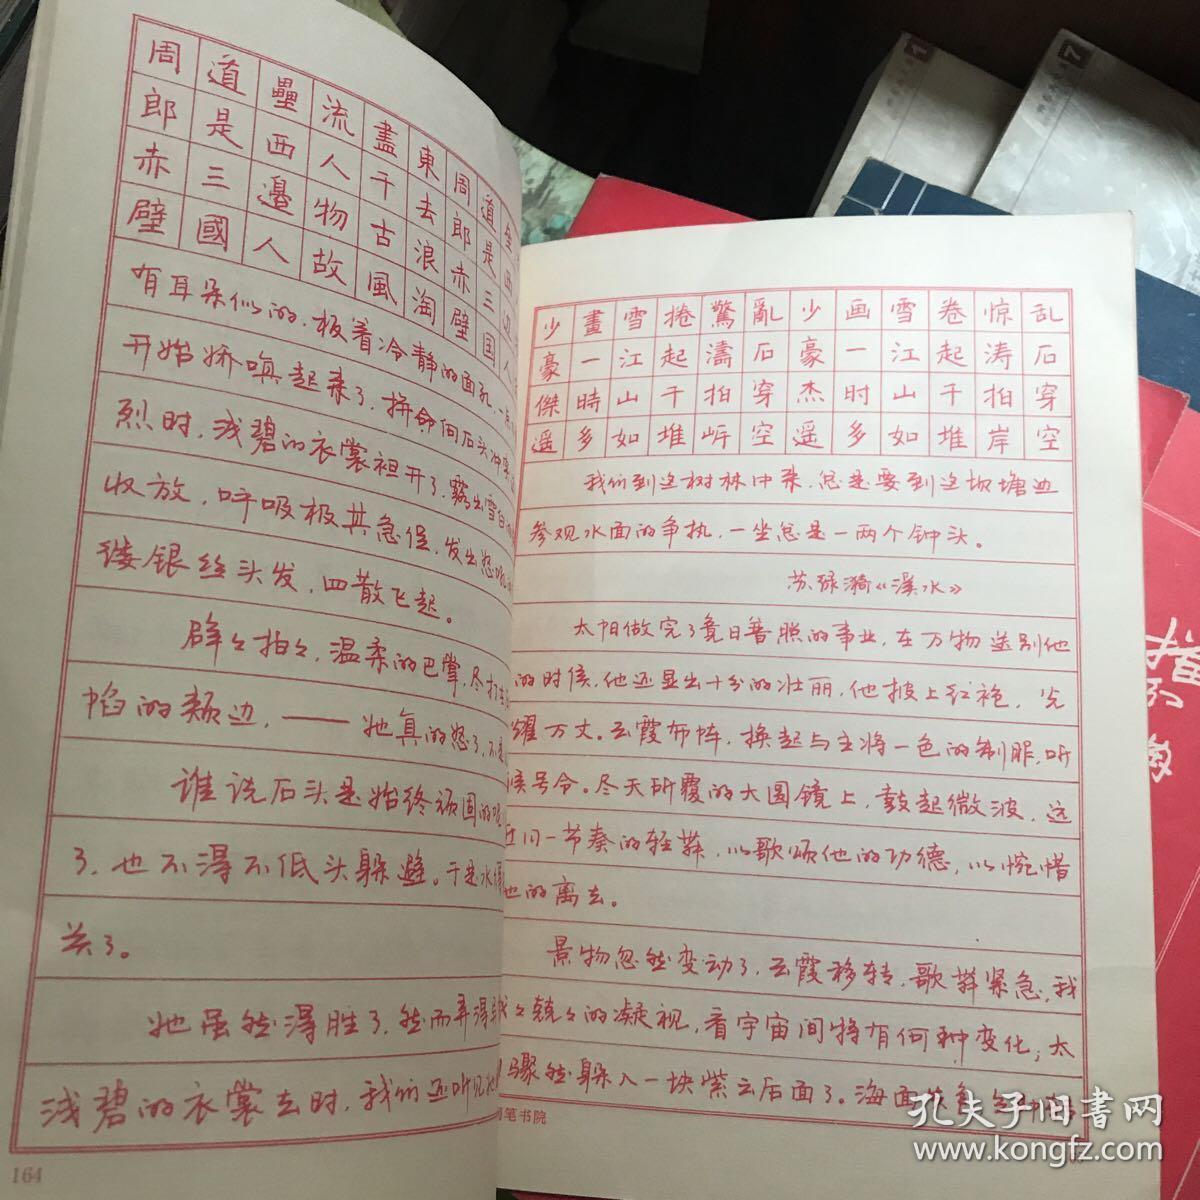 周道壘流盡東周道
郎是西人千去郎是
赤三邊物古浪赤三
壁國人故風淘壁国
有耳朵似的,板着冷静的面孔,一
开始娇嗔起来了,拼命向石头冲
烈时,浅碧的衣裳袒开了,露出雪白
收放,呼吸极其急促,发出怒吼
缕银丝头发,四散飞起。
辟々拍々,温柔的巴掌,尽打
的颊边,——她真的怒了,不是
谁说石头是始终顽固的呢
了,也不得不低头躲避。于是水
关了。
她虽然得胜了,然而弄得
浅碧的衣裳去时,我们还听见
164
少畫雪捲驚亂少画雪卷惊乱
豪一江起濤石豪一江起涛石
傑時山千拍穿杰时山千拍穿
遥多如堆岸空遥多如堆岸空
我们到这树林中来,总是要到这坝塘边
参观水面的争执,一坐总是一两个钟头。
苏绿漪《溪水》
太阳做完了竟日普照的事业,在万物送别他
的时候,他还显出十分的壮丽,他披上红袍,光
耀万丈。云霞布阵,换起与主将一色的制服,听
候号令。尽天所覆的大圆镜上,鼓起微波,远
近同一节奏的轻舞,以歌颂他的功德,以惋惜
他的离去。
景物忽然变动了,云霞移转,歌舞紧急,我
々兢々的凝视,看宇宙间将有何种变化;太
骤然躲入一块紫云后面了。海面
笔书院
孔夫子旧书网
www.kongfz.com
1
7